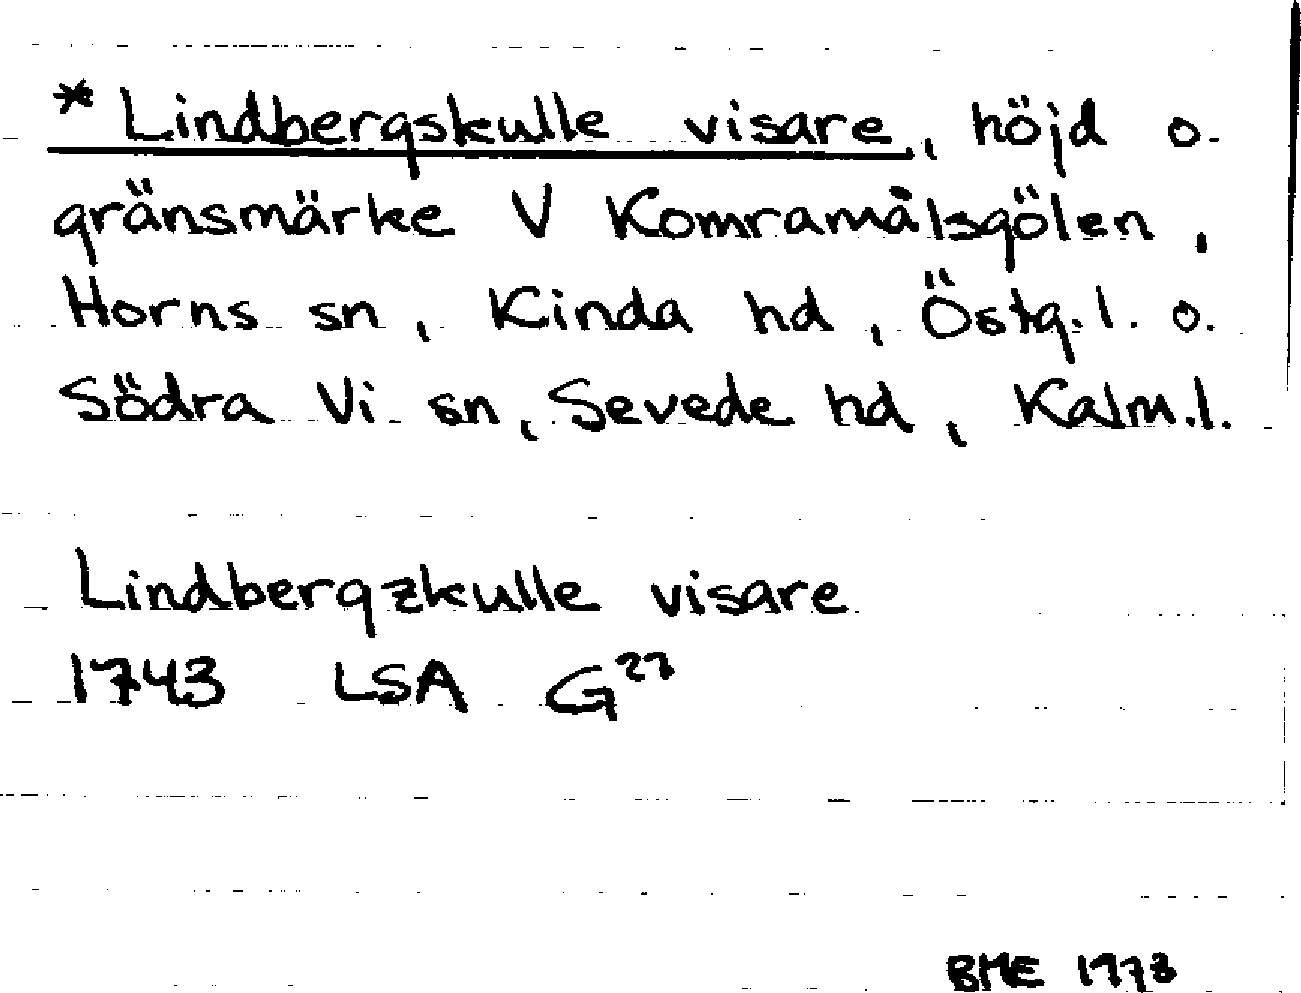 * Lindbergskulle visare, höjd o.
gränsmärke V Komramålsgölen,
Horns sn, Kinda hd, Östg.l. o.
Södra Vi sn, Sevede hd, Kalm.l.
Lindbergzkulle visare
1743 LSA G27
BME 1973